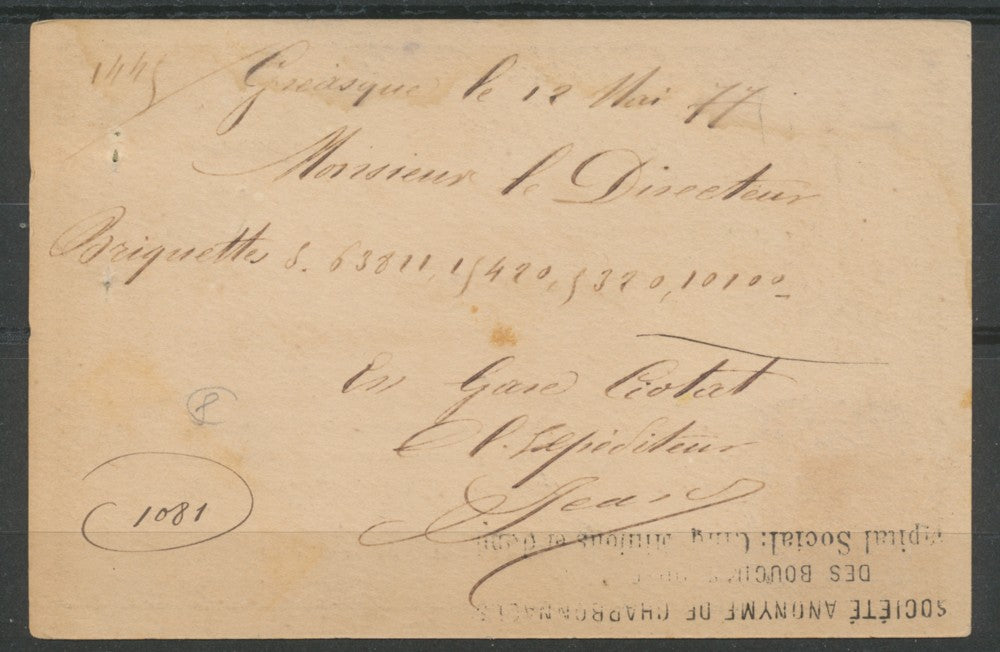 1445
Gréasque le 12 Mai 77
Monsieur le Directeur
Briquettes S. 63811, 15420, 5320, 10100
En Gare Ciotat
l'Expéditeur
Jean
8
1081
SOCIÉTÉ ANONYME DE CHARBONNAGES
DES BOUCHES
pital Social: Cinq Millions et Demi